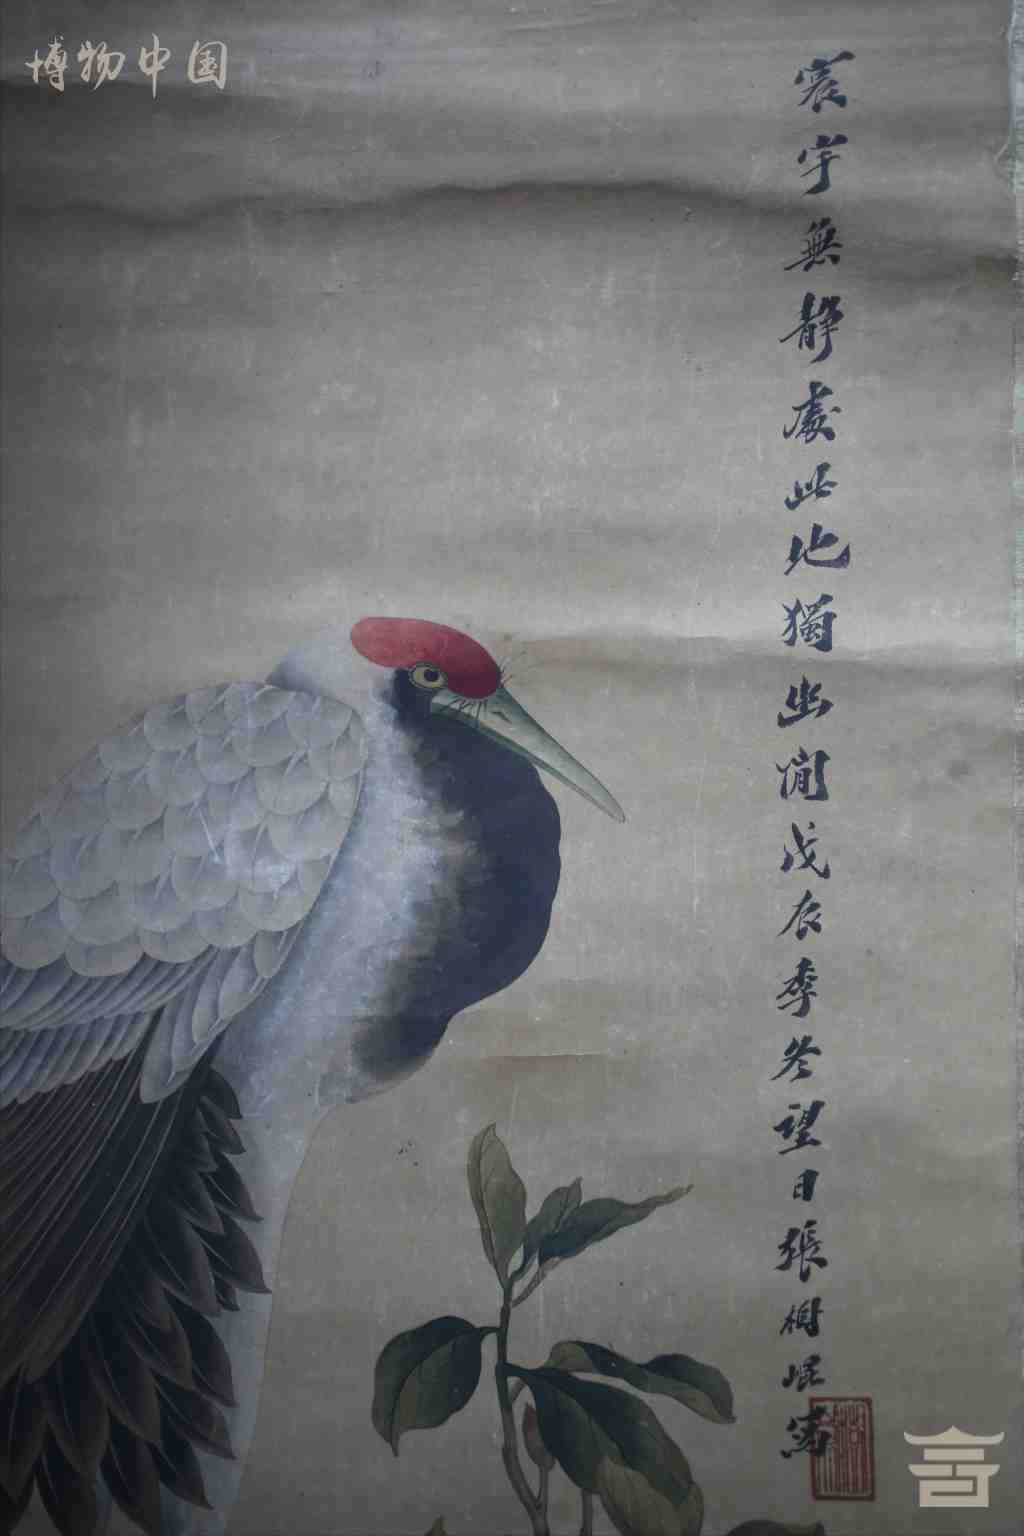 博物中国
寰宇無静處此地獨幽閒戊辰季冬望日張樹崐寫